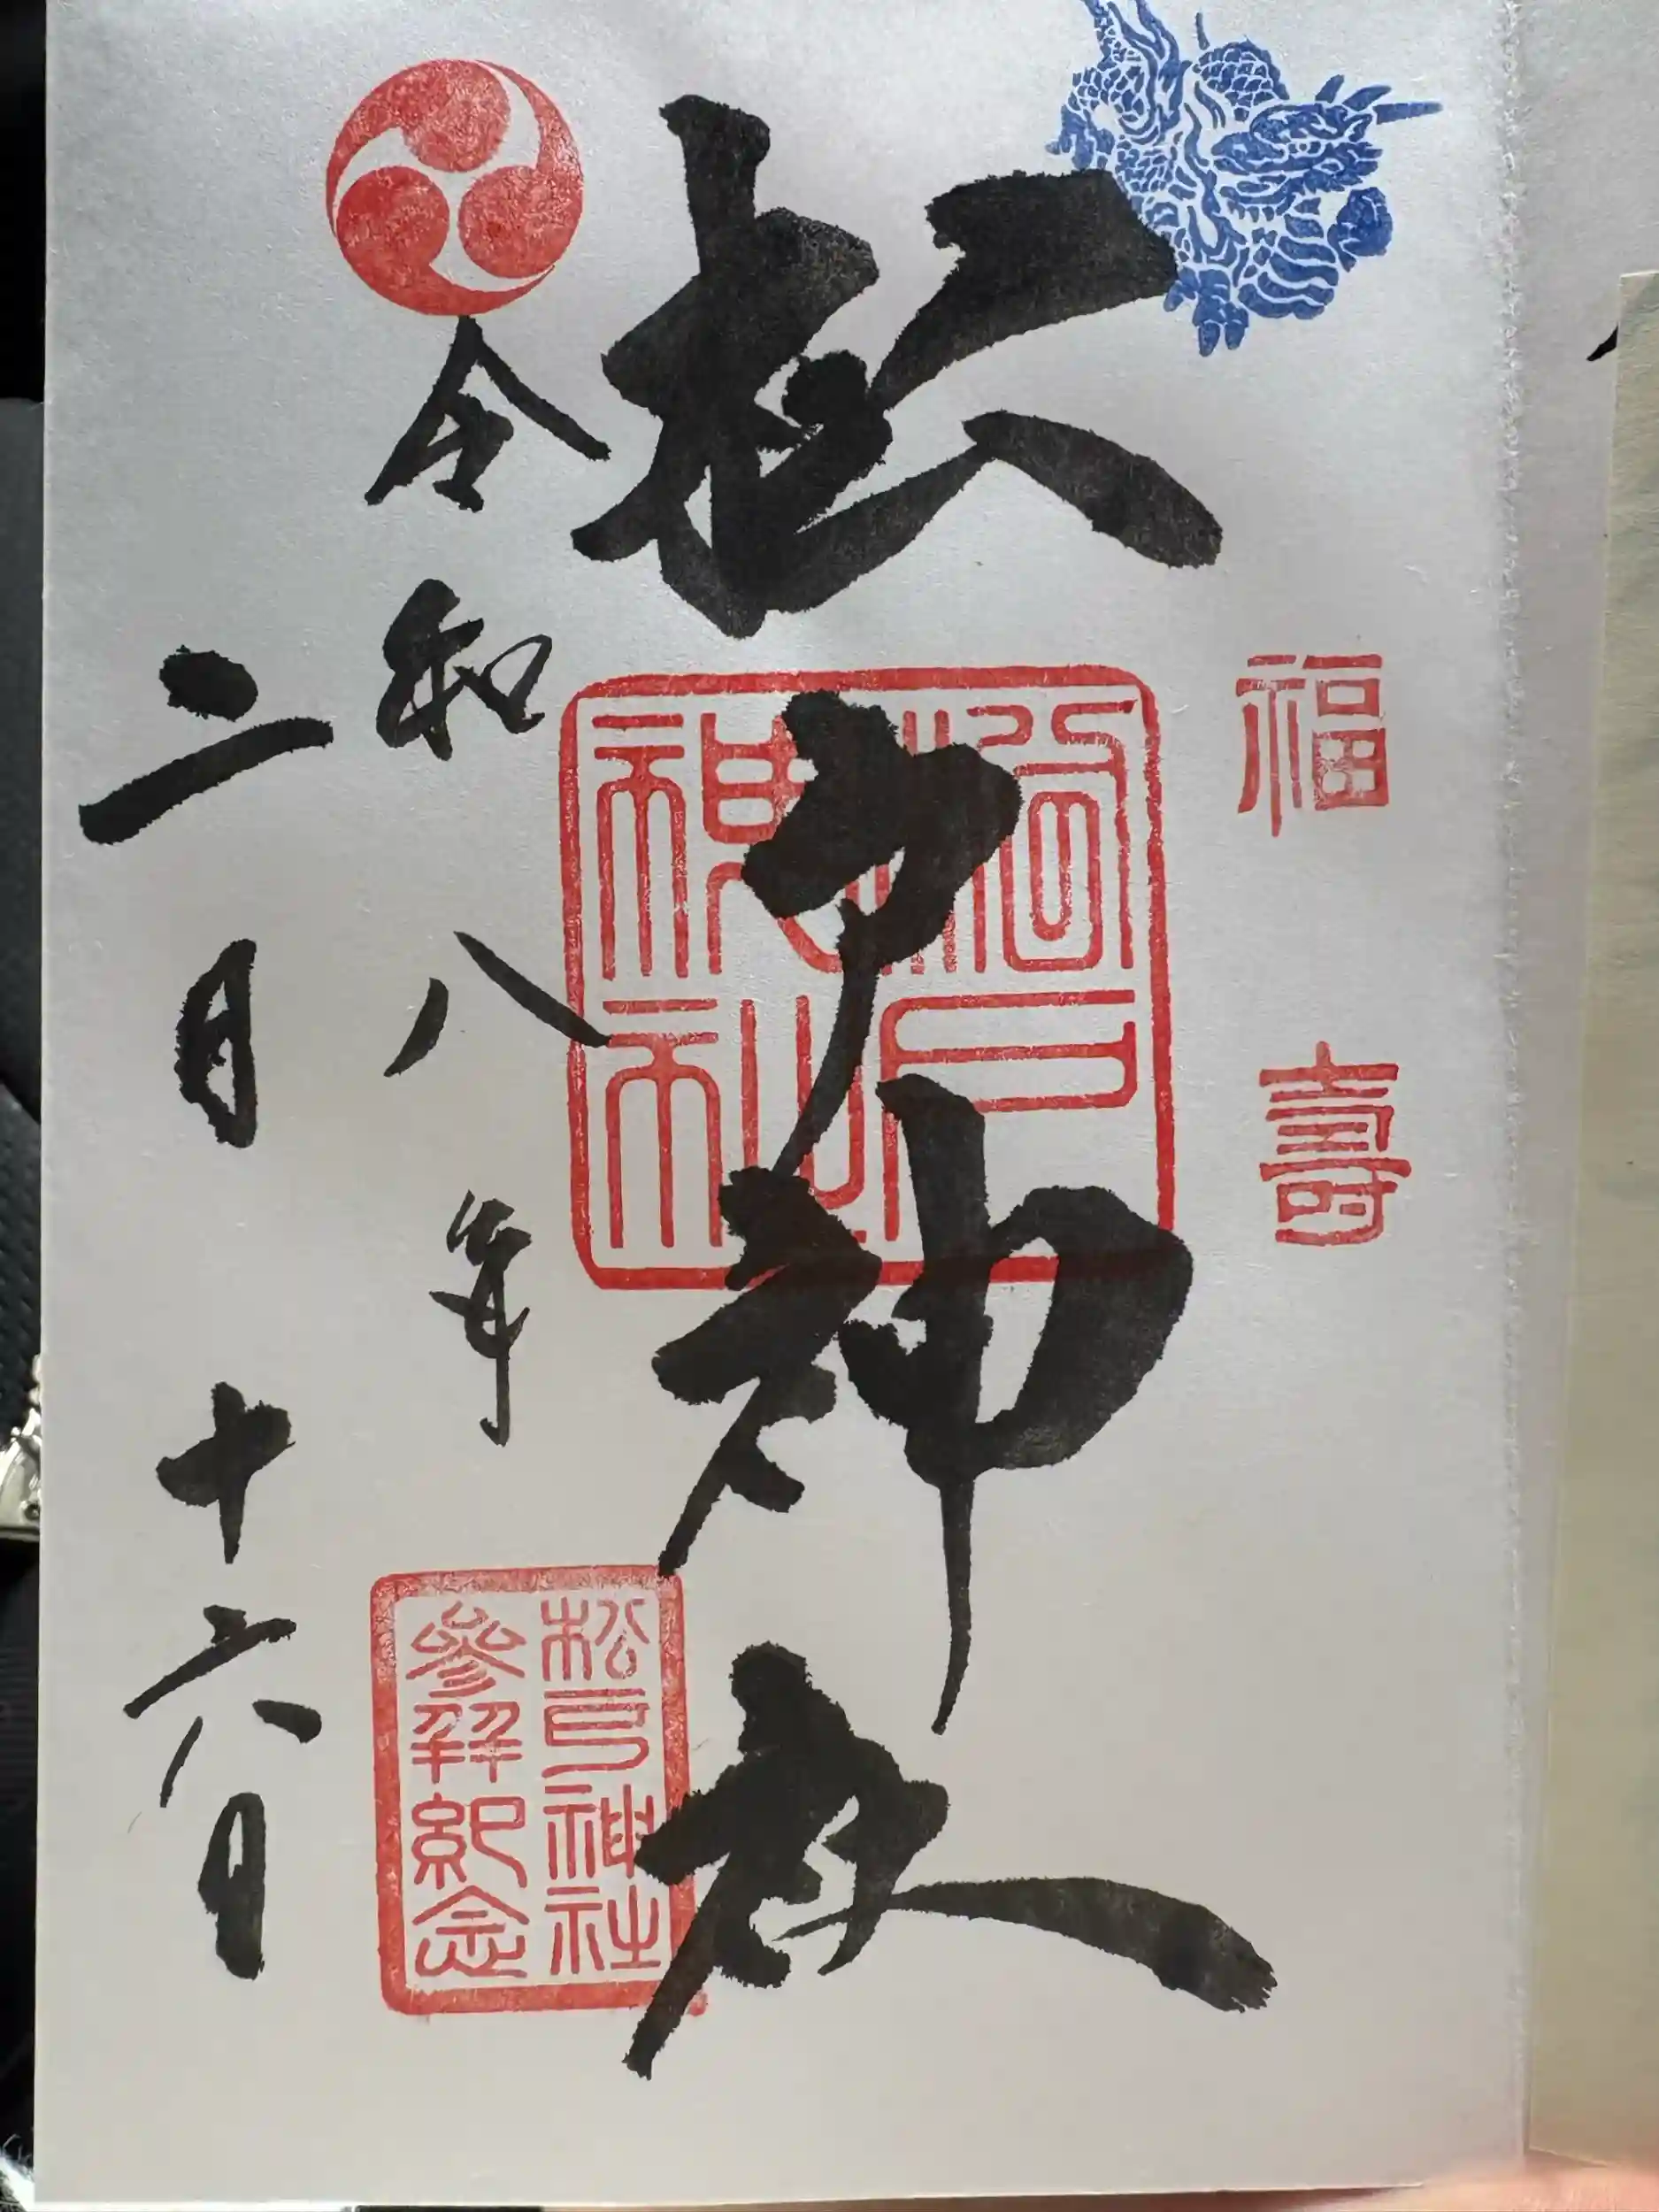 福壽
松戸神社
松戸神社
令和八年
松戸神社
參拜紀念
二月十六日